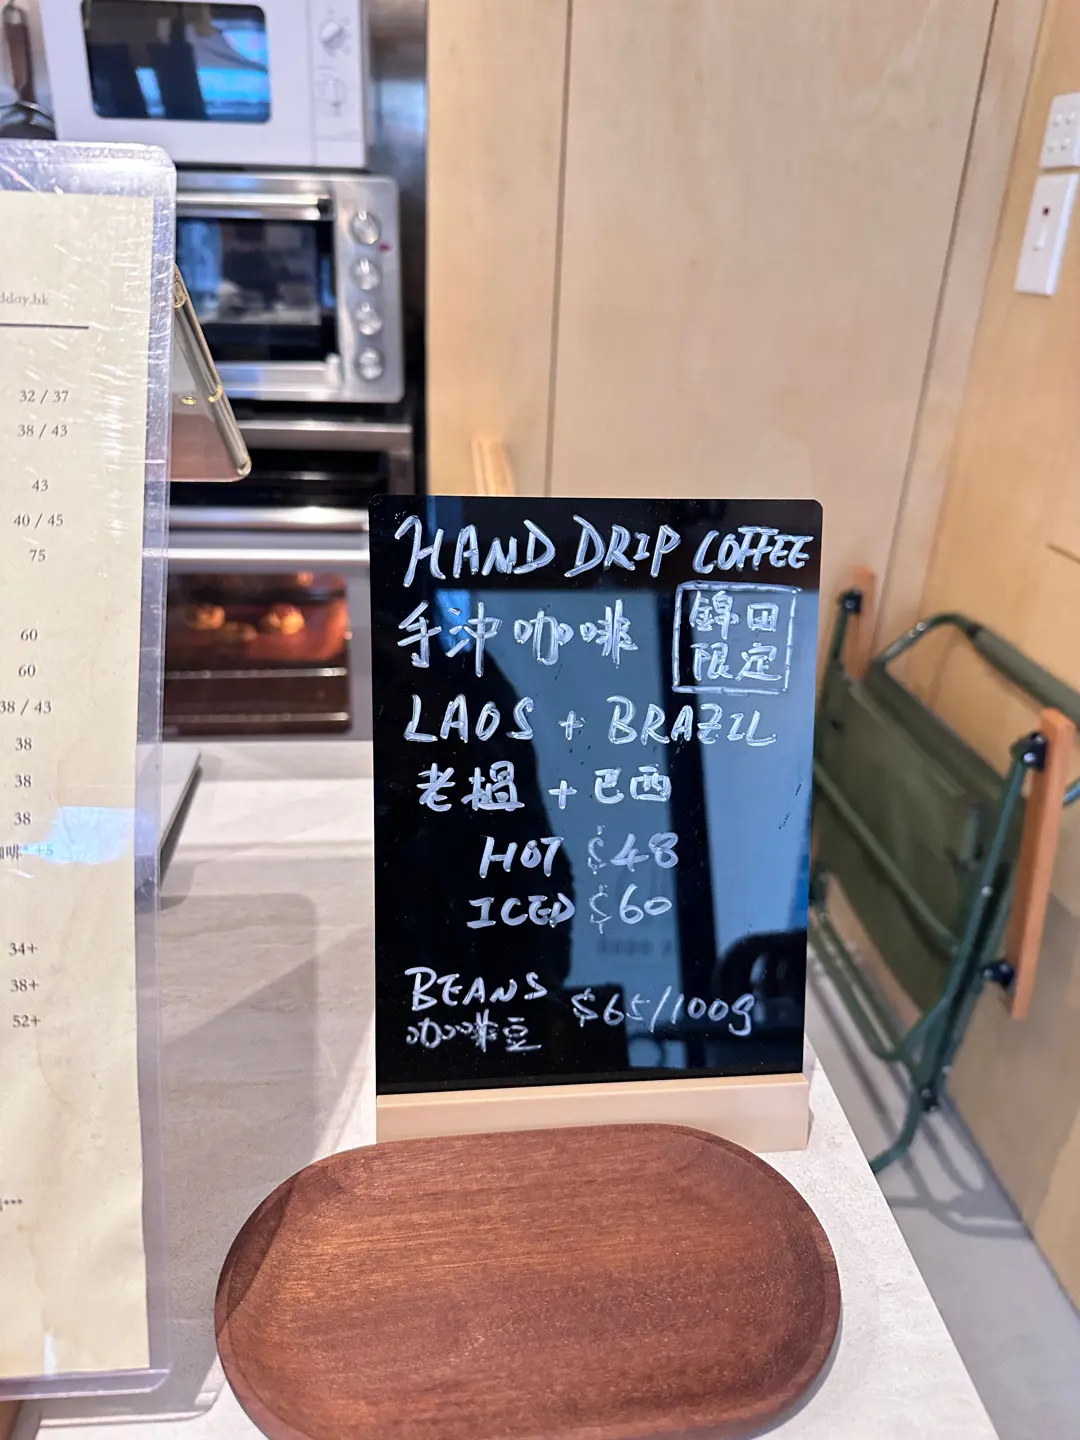 dday.hk
32 / 37
38 / 43
43
40 / 45
75
60
60
38 / 43
38
38
38
咖啡 +5
34+
38+
52+
HAND DRIP COFFEE
手沖咖啡
錦田
限定
LAOS + BRAZIL
老撾 + 巴西
HOT $48
ICED $60
BEANS $65/100g
咖啡豆